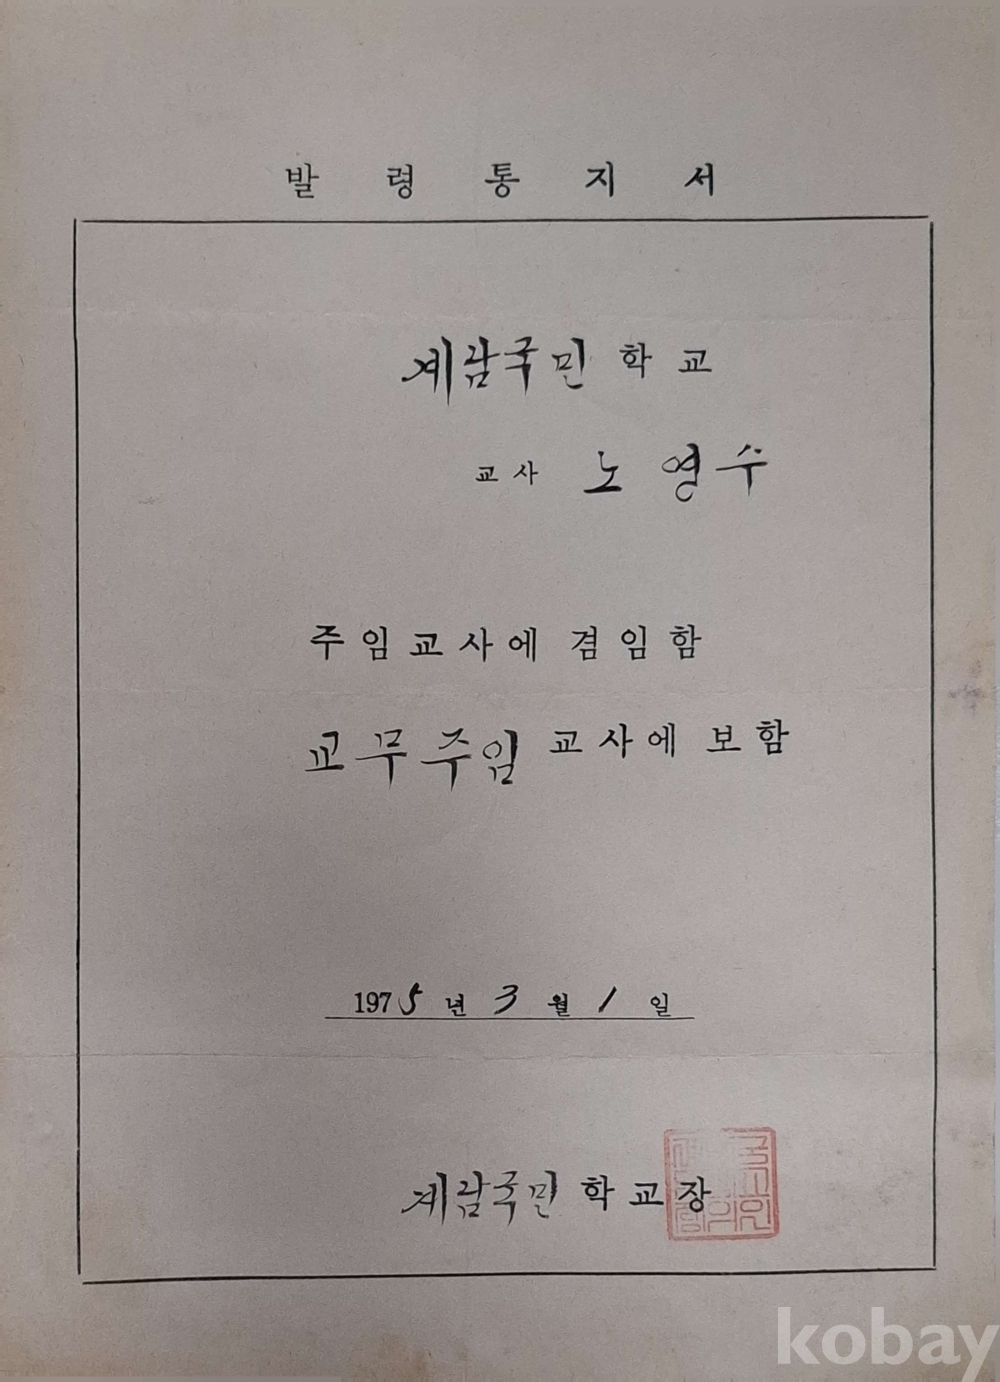 발령통지서
계남국민학교
교사 노영수
주임교사에 겸임함
교무주임 교사에 보함
1975년 3월 1일
계남국민학교장
kobay